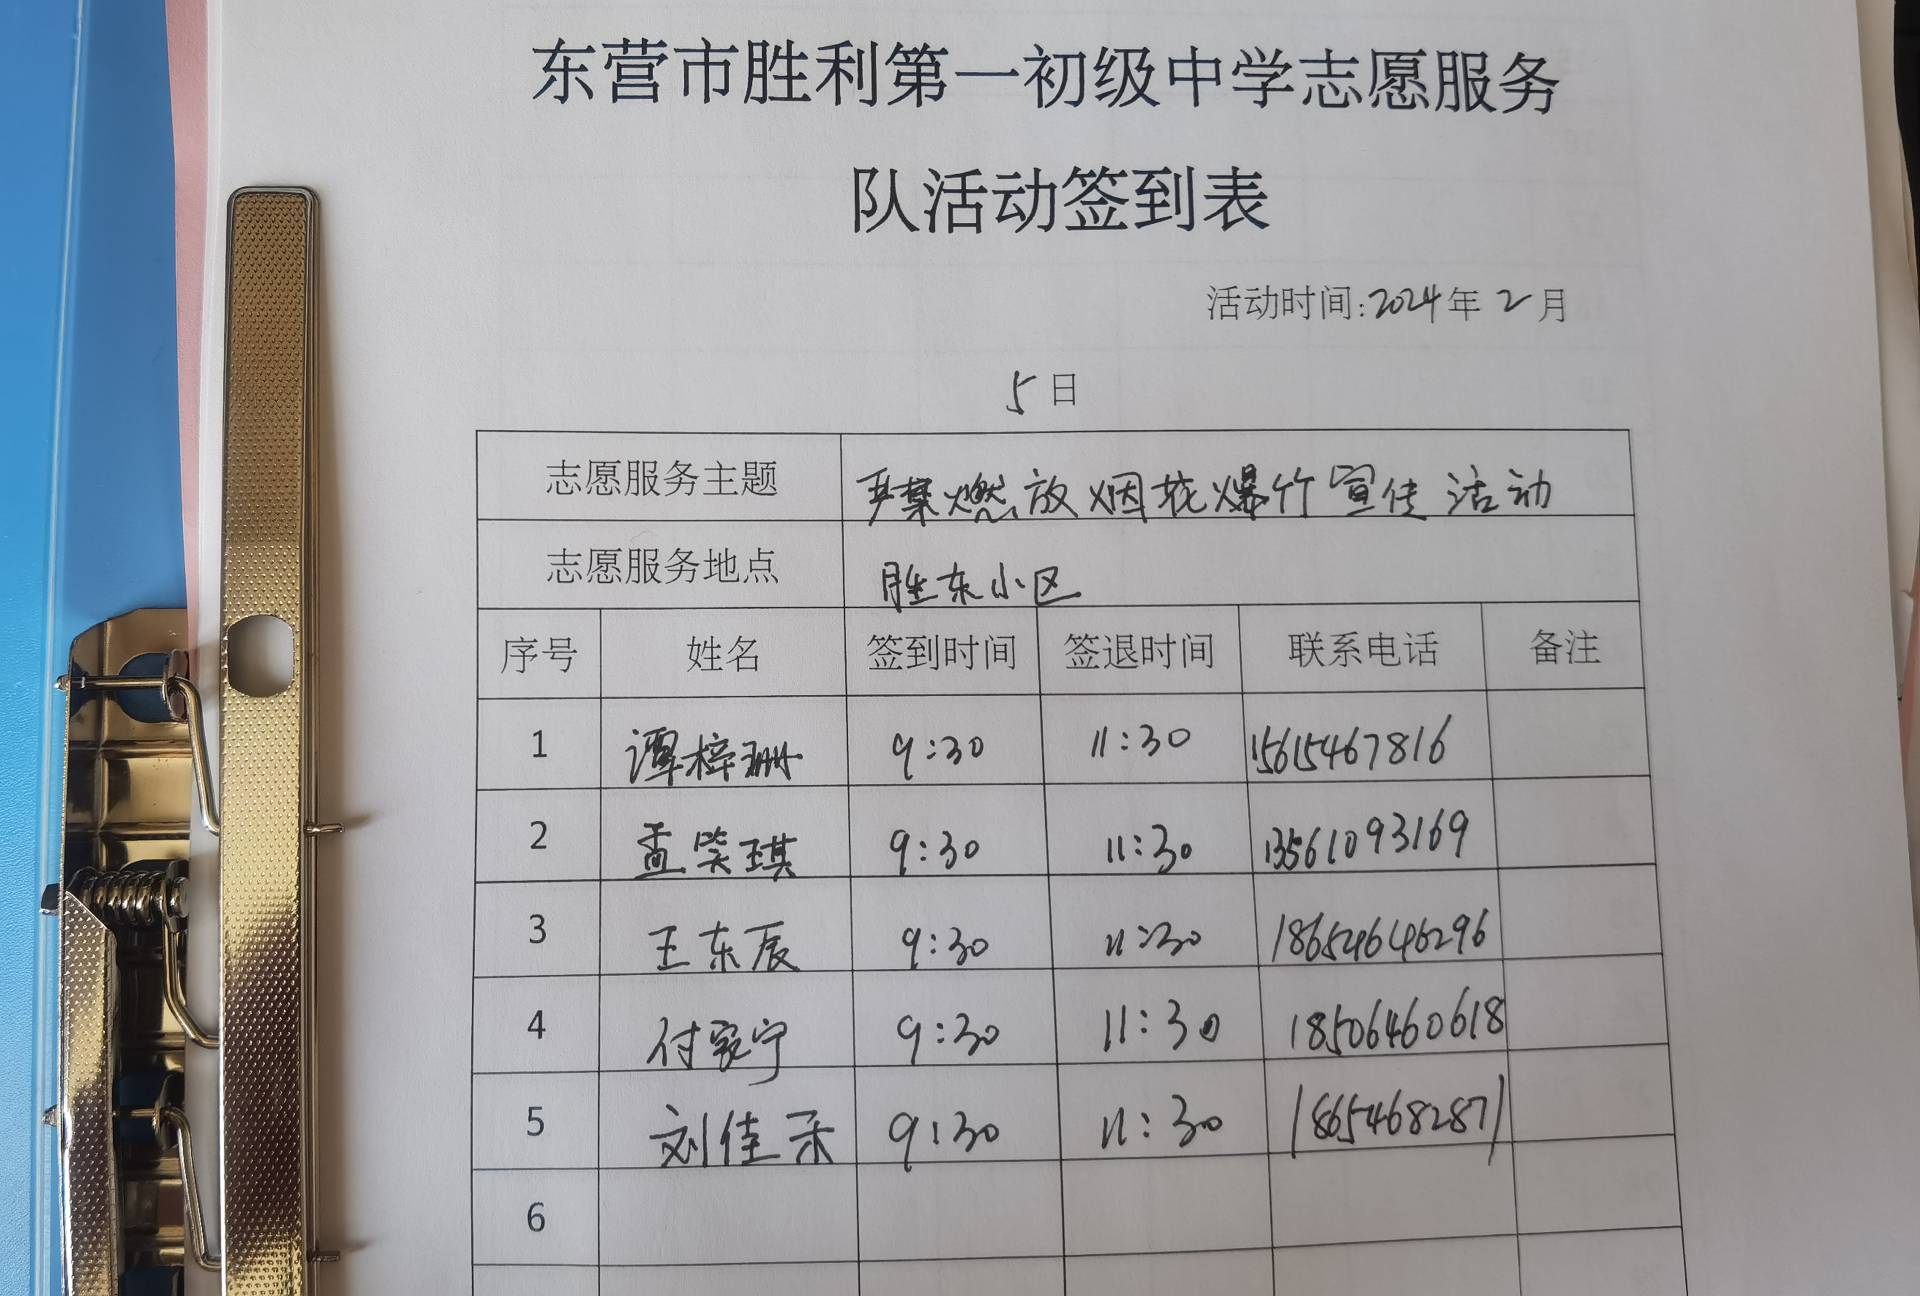 东营市胜利第一初级中学志愿服务
队活动签到表
活动时间:2024年2月
5日
志愿服务主题 严禁燃放烟花爆竹宣传活动
志愿服务地点 胜东小区
序号 姓名 签到时间 签退时间 联系电话 备注
1 谭梓珊 9:30 11:30 15615467816
2 孟笑琪 9:30 11:30 13561093169
3 王东辰 9:30 11:30 18654646296
4 付家宁 9:30 11:30 18506460618
5 刘佳禾 9:30 11:30 18654682871
6